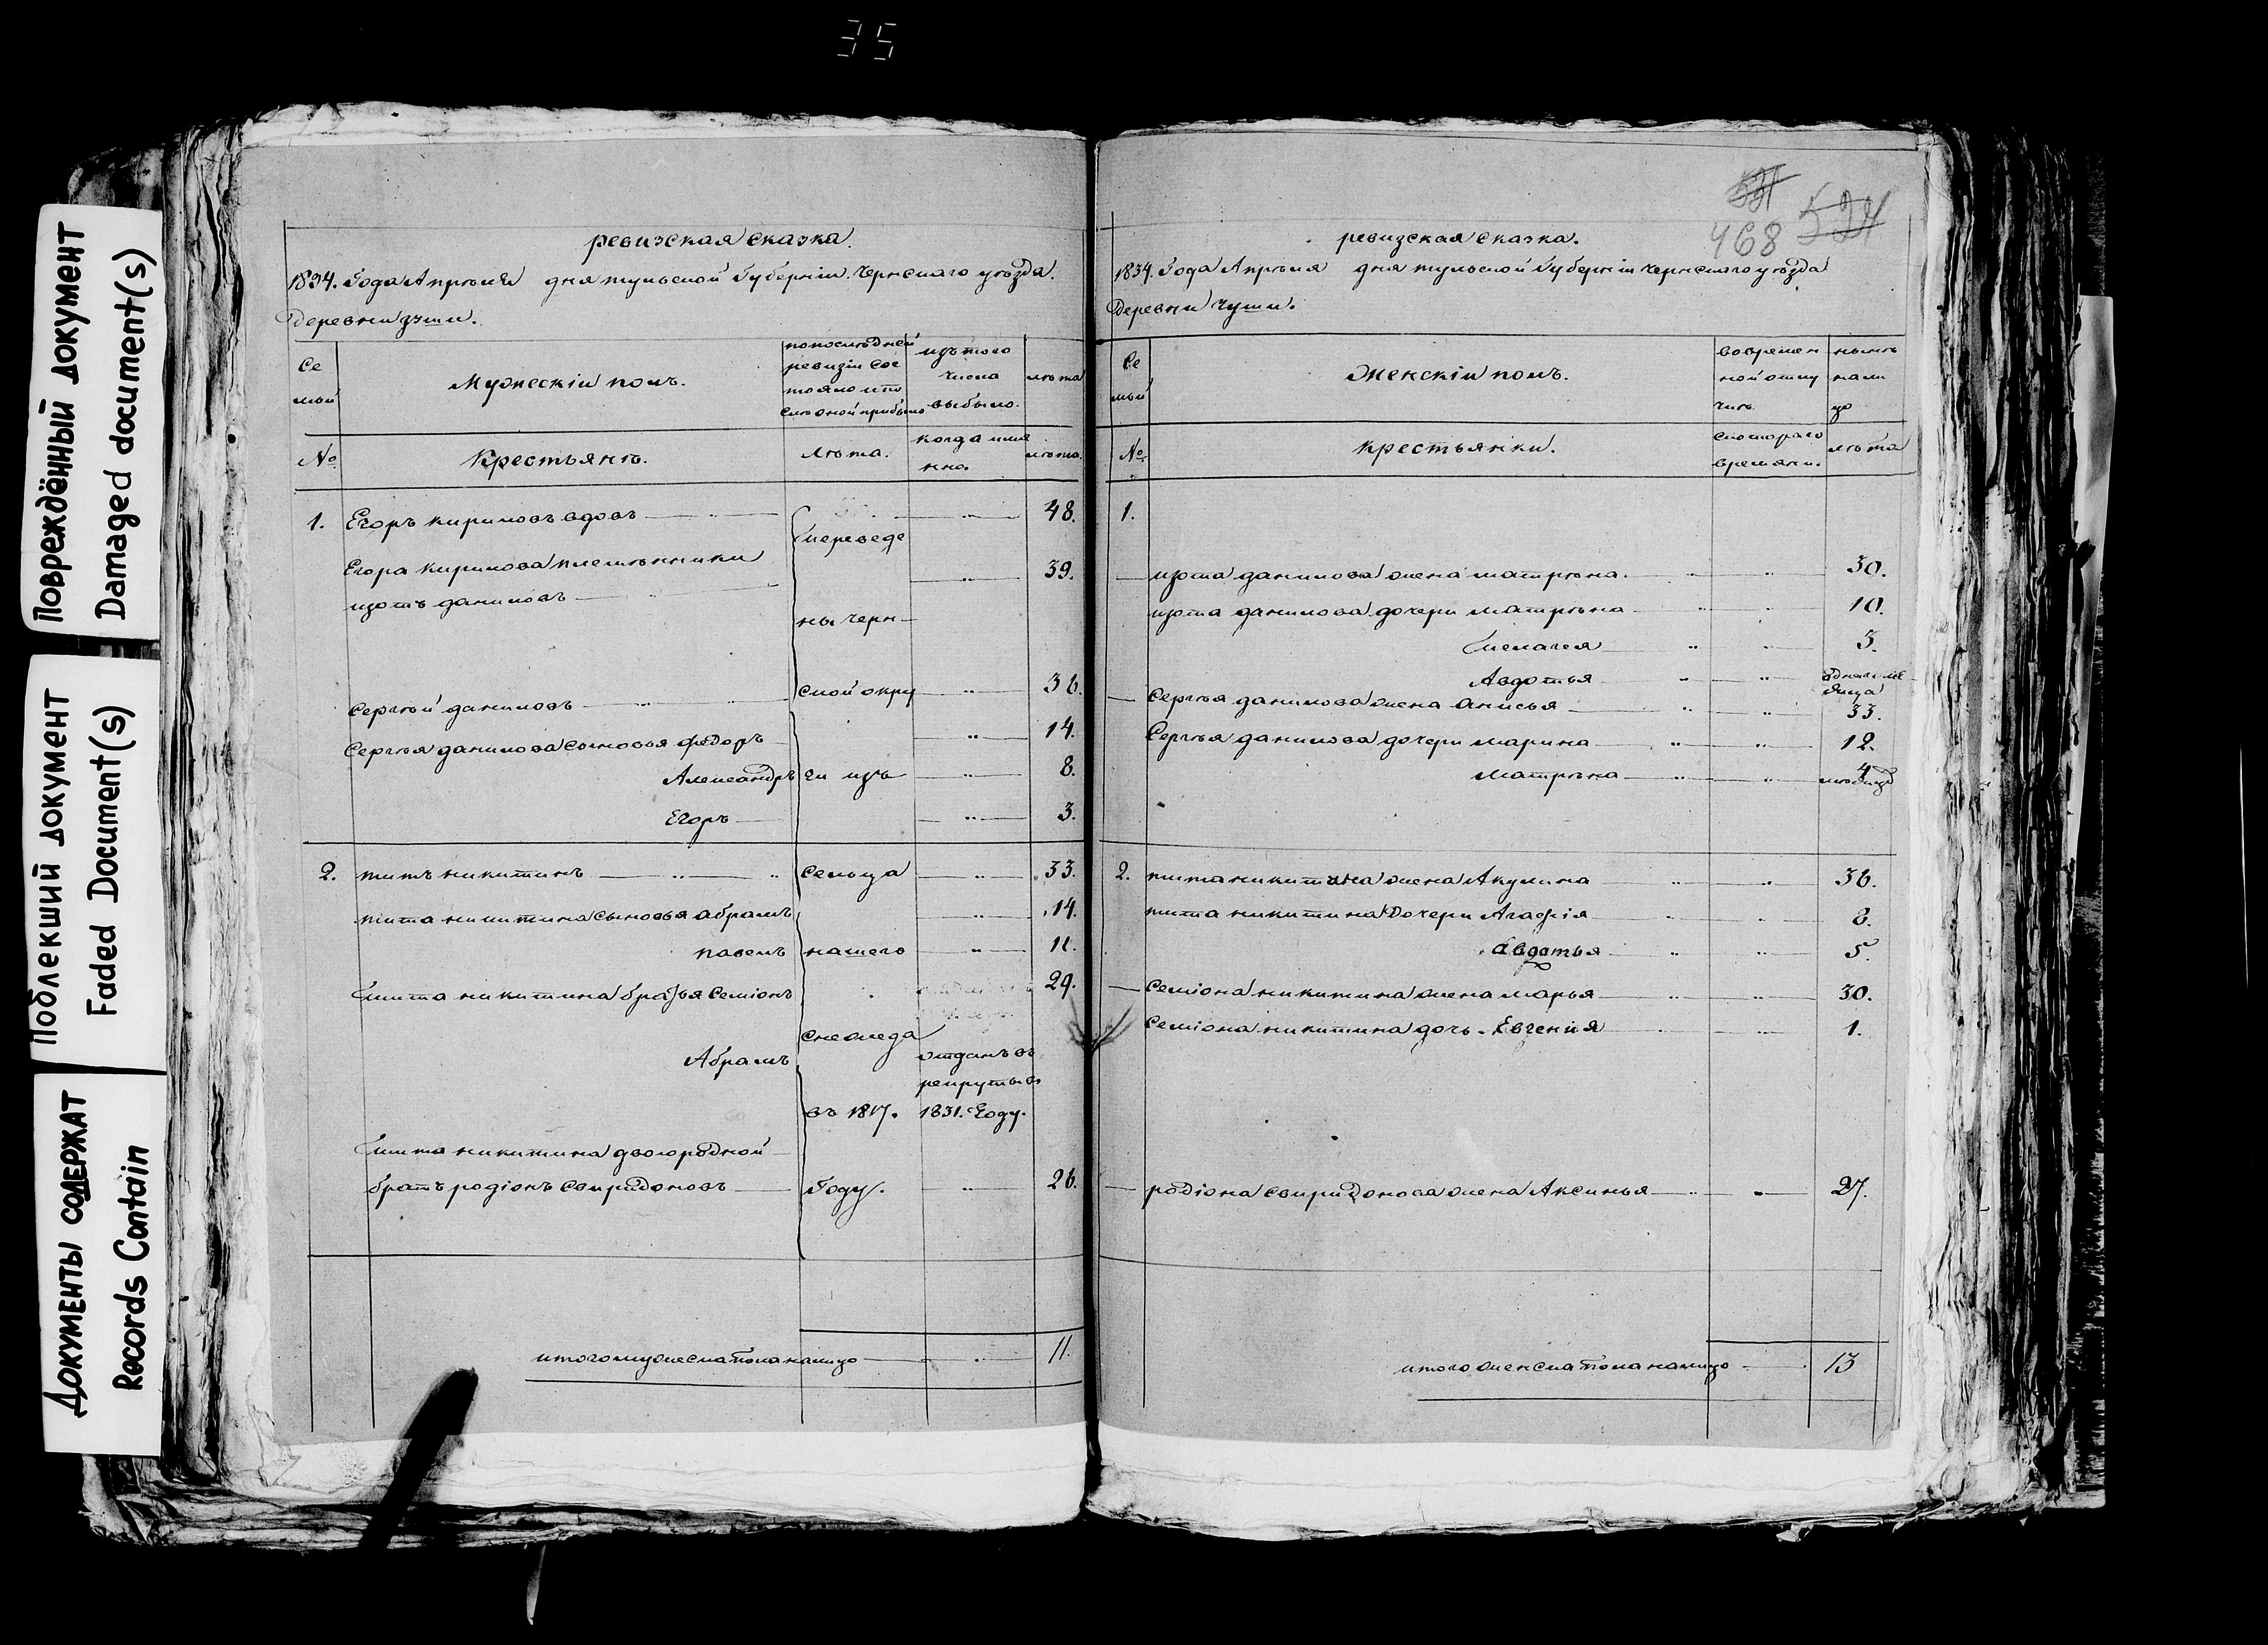 35
Повреждённый документ
Damaged document(s)
Поблекший документ
Faded Document(s)
Документы содержат
Records Contain
ревизская сказка.
1834. Года Апрѣля дня тульской Губерніи. Чернскаго уѣзда.
Деревни зуши.
Се
мьи
Мужескій полъ.
попослѣдней
ревизіи сос
тояло ипо
слѣ оной прибыло
изъ того
числа
выбыло.
лѣта
№
Крестьянѣ.
лѣта.
когда име
нно.
лѣта.
1. Егоръ кириловъ вдовъ 48.
переведе
Егора кирилова племѣнники 39.
изотъ даниловъ
ны черн
сергѣй даниловъ ской окру 36.
Сергѣя данилова сыновья федоръ 14.
Александръ ги изъ 8.
Егоръ 3.
2. титъ никитинъ сельца 33.
тита никитина сыновья абрамъ 14.
павелъ нашего 11.
тита никитина братья семіонъ 29.
снежеда
Абрамъ отданъ въ
рекруты въ
въ 1817. 1831. Году.
тита никитина двоюродной
братъ родіонъ свиридоновъ году. 26.
итого мужеска пола налицо 11.
531
468 524
ревизская сказка.
1834. Года Апрѣля дня тульской Губерніи чернскаго уѣзда
Деревни чуши.
Се
мьи
Женскій полъ.
вовремен
ной отлу
чкѣ
нынѣ
нали
цо
№
крестьянки.
скотораго
времяни.
лѣта
1.
изота данилова жена матрѣна. 30.
изота данилова дочери матрѣна 10.
пелагея 5.
Авдотья одного мѣ
сяца
Сергѣя данилова жена анисья 33.
Сергѣя данилова дочери марина 12.
матрѣна 4
мѣсяцъ
2. тита никитина жена Акулина 36.
тита никитина дочери Агафія 8.
авдотья 5.
семіона никитина жена марья 30.
семіона никитина дочь Евгенія 1.
родіона свиридонова жена Аксинья 27.
итого женска пола налицо 13